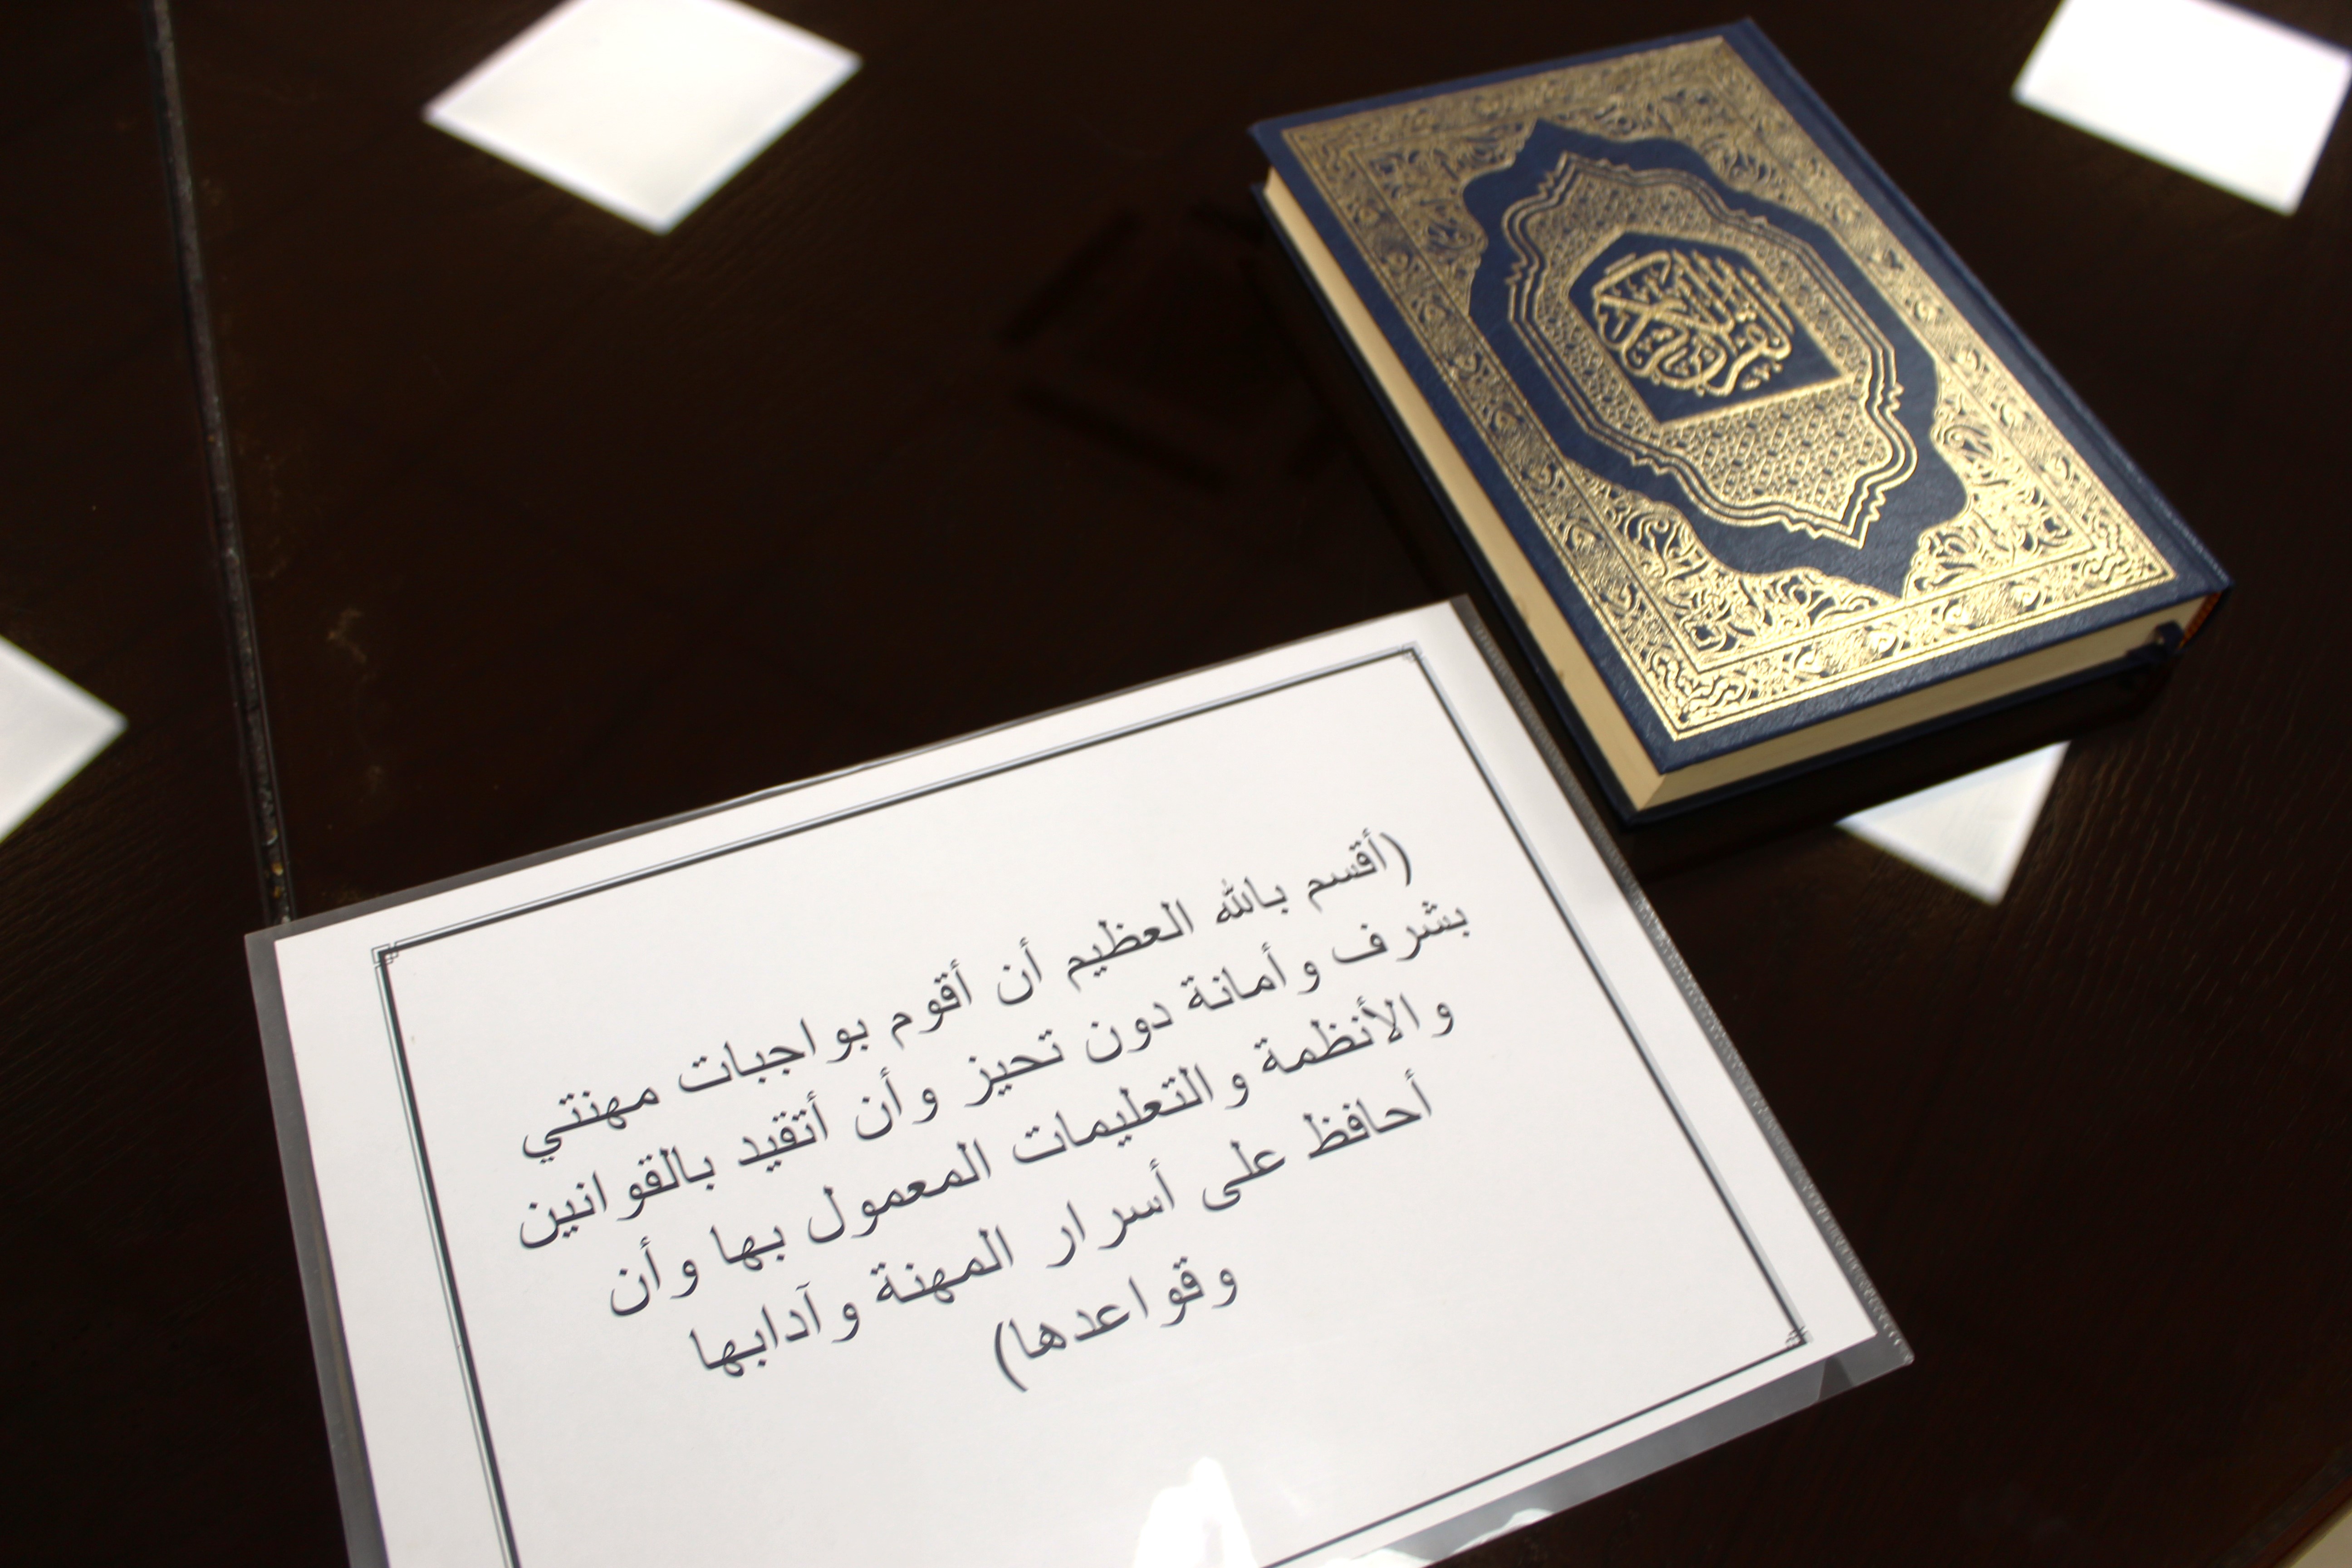 القرآن الكريم
(أقسم بالله العظيم أن أقوم بواجبات مهنتي
بشرف وأمانة دون تحيز وأن أتقيد بالقوانين
والأنظمة والتعليمات المعمول بها وأن
أحافظ على أسرار المهنة وآدابها
وقواعدها)